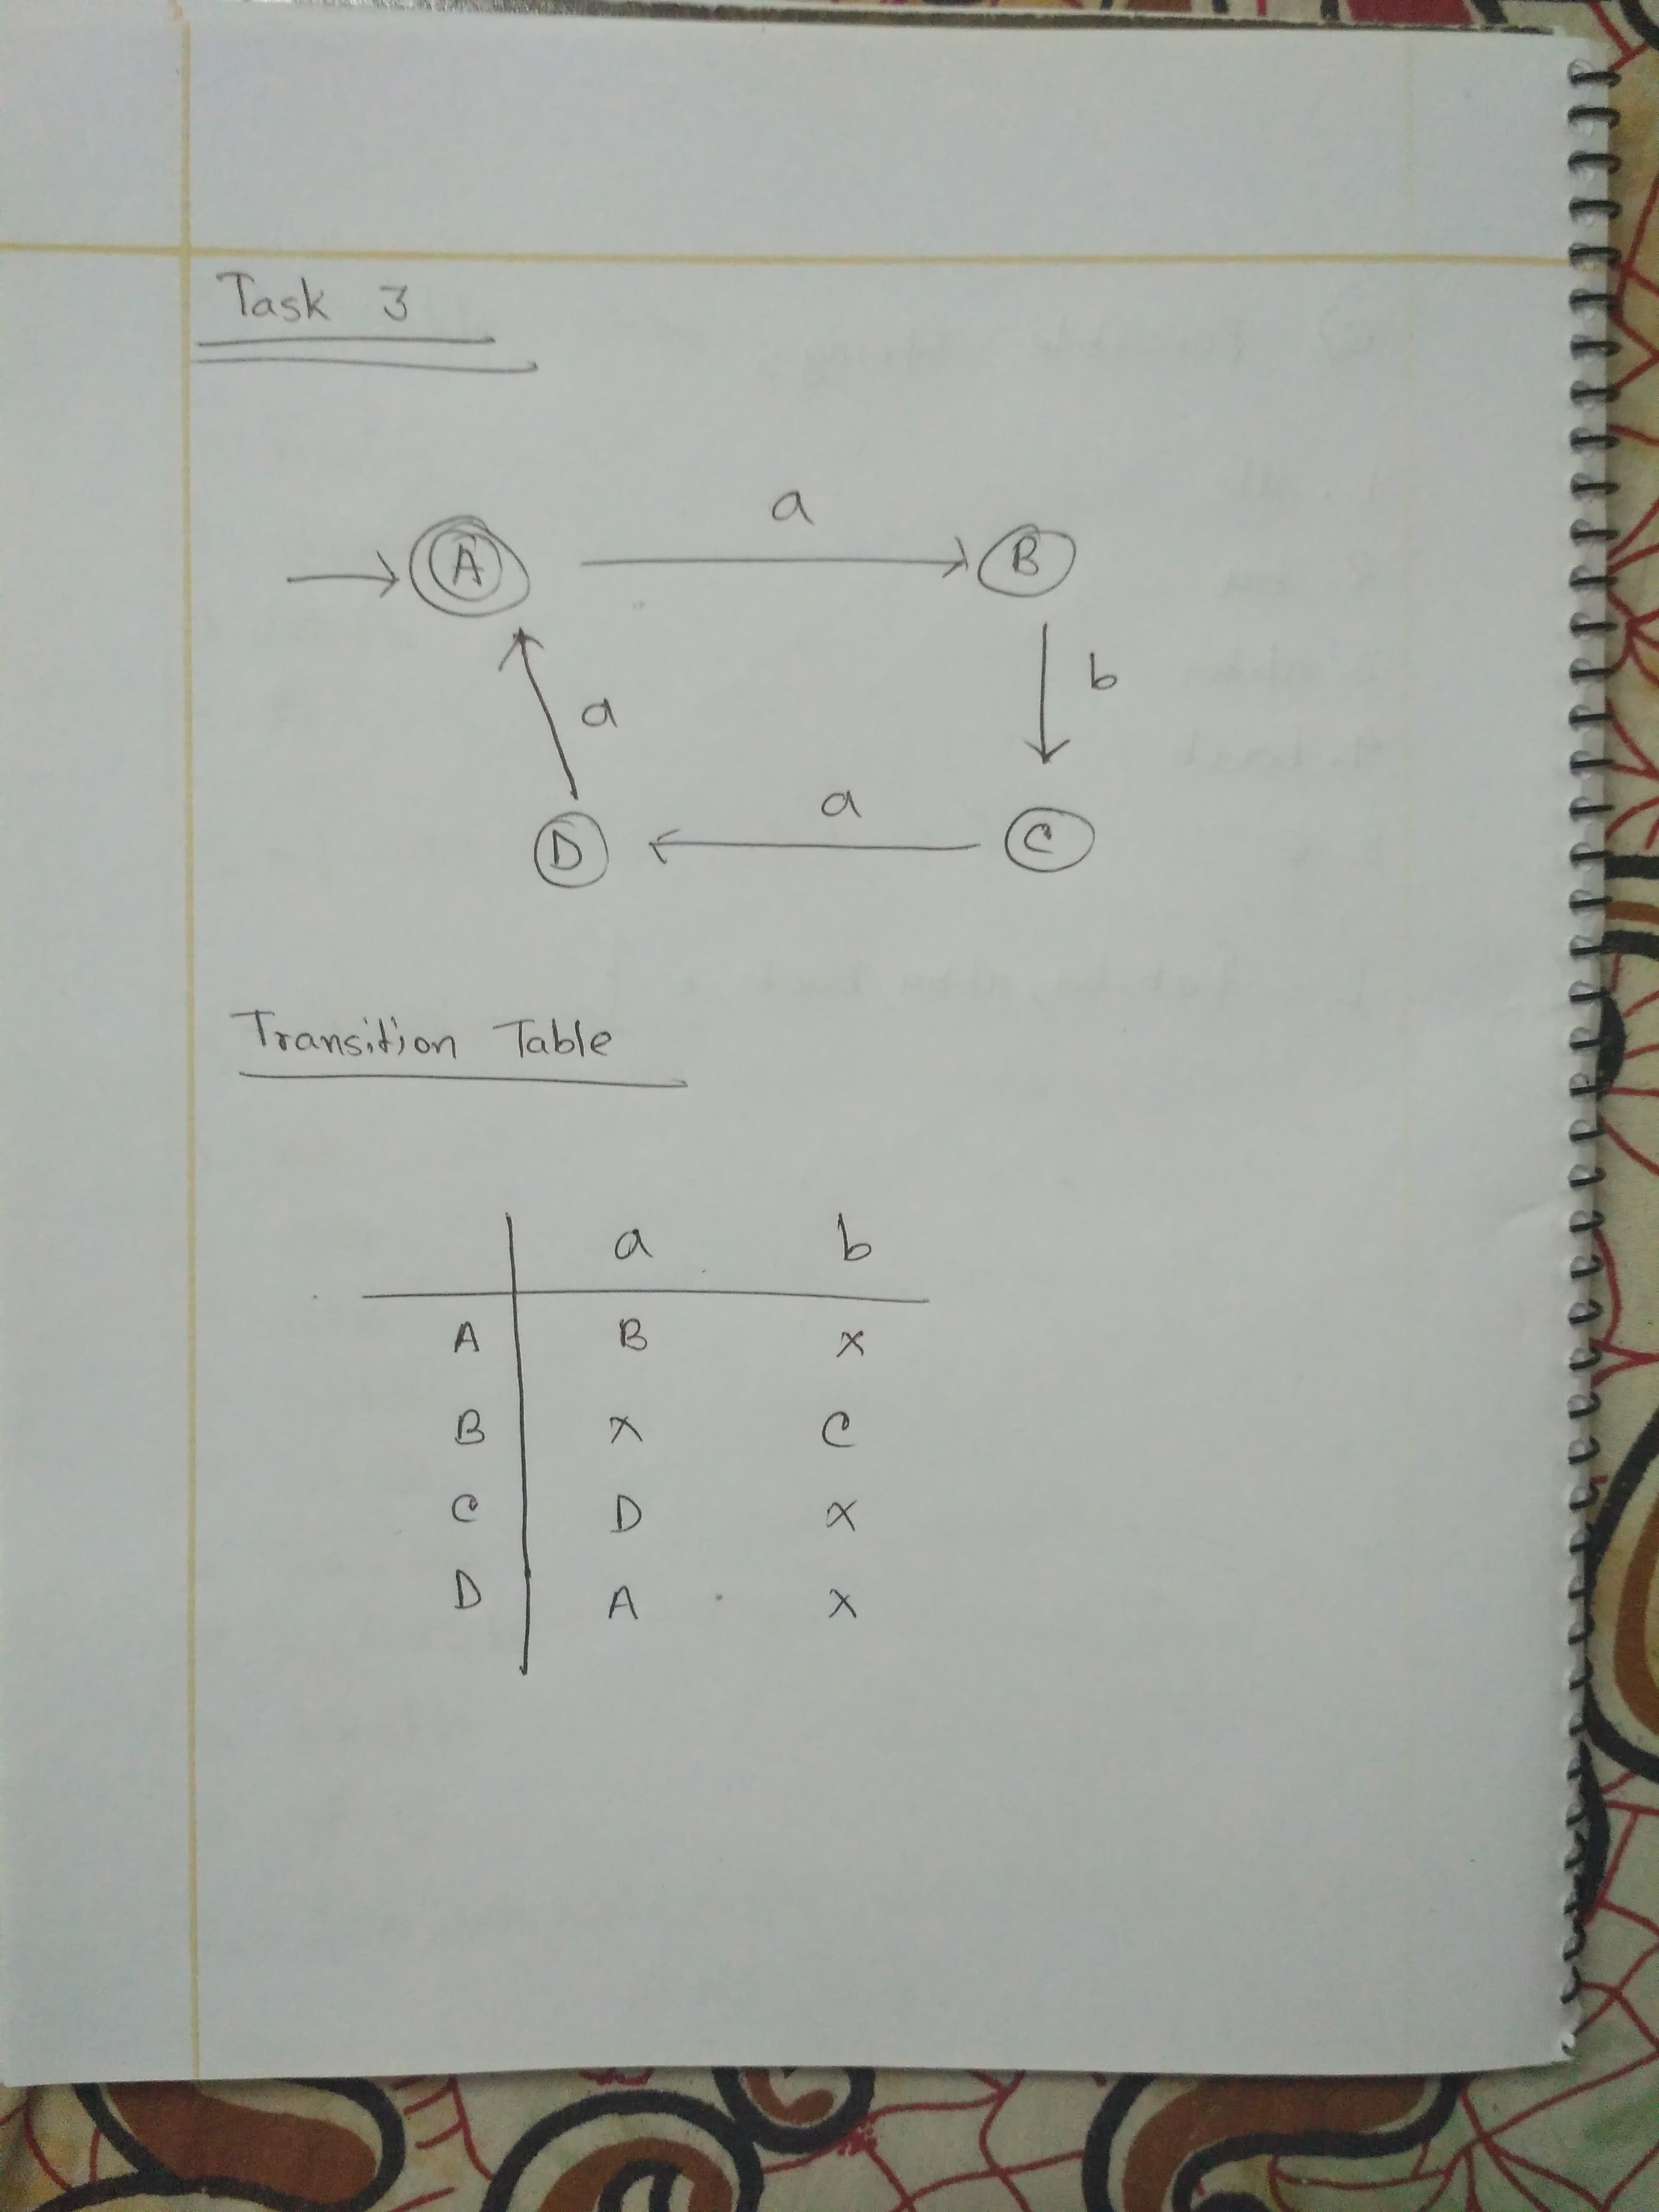 Task 3
a
A B
b
a
a
D C
Transition Table
a b
A B x
B x C
C D x
D A x